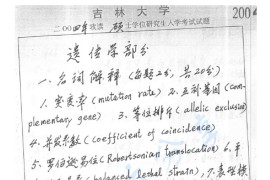 吉林大学
二〇〇四年攻读硕士学位研究生入学考试试题
200
遗传学部分
一、名词解释(每题2分,共20分)
1. 突变率(mutation rate) 2. 互补基因(com-
plementary gene) 3. 等位排斥(allelic exclusion)
4. 并发系数(coefficient of coincidence)
5. 罗伯逊易位(Robertsonian translocation) 6. 平
(balanced lethal strain), 7. 表型模